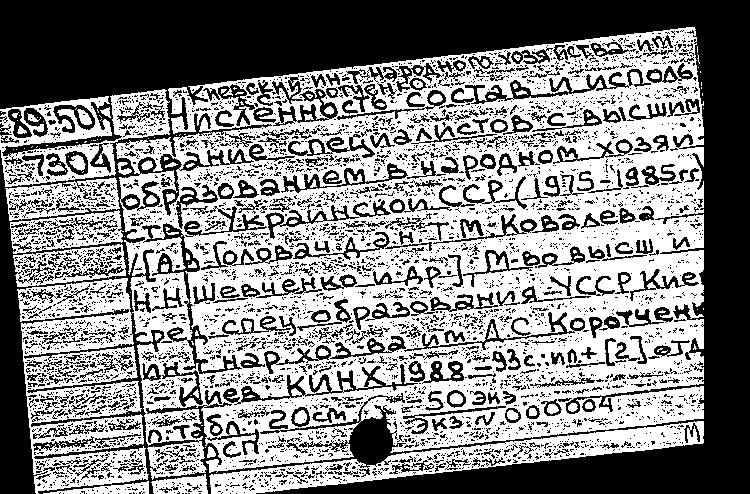 Киевский ин-т народного хозяйства им
Д.С. Коротченко
89-50К
Численность, состав и исполь
7304 зование специалистов с высшим
образованием в народном хозяй-
стве Украинской ССР (1975-1985гг)
/[А.В. Головач д.э.н., Т.М. Ковалева,
Н.Н. Шевченко и др.], М-во высш. и
сред. спец. образования УССР, Киев
ин-т нар. хоз-ва им. Д.С. Коротченк
- Киев: КИНХ, 1988 - 93с.: ил + [2] отд
л. табл.; 20см. - 50 экз.
Экз. N 000004.
ДСП.
М